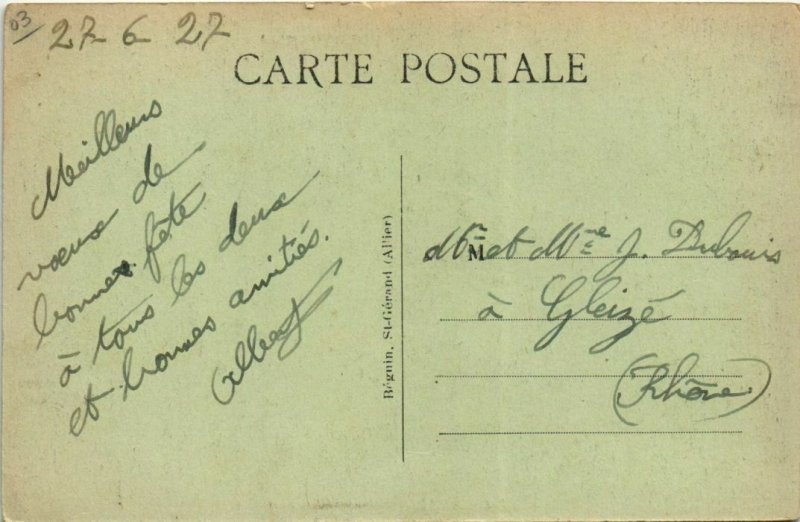 03
27-6-27
CARTE POSTALE
Meilleurs
vœux de
bonne fête
à tous les deux
et bonnes amitiés.
Albert
Béguin, St-Gérand (Allier)
M
Mr et Mme J. Dubouis
à Gleizé
(Rhône)